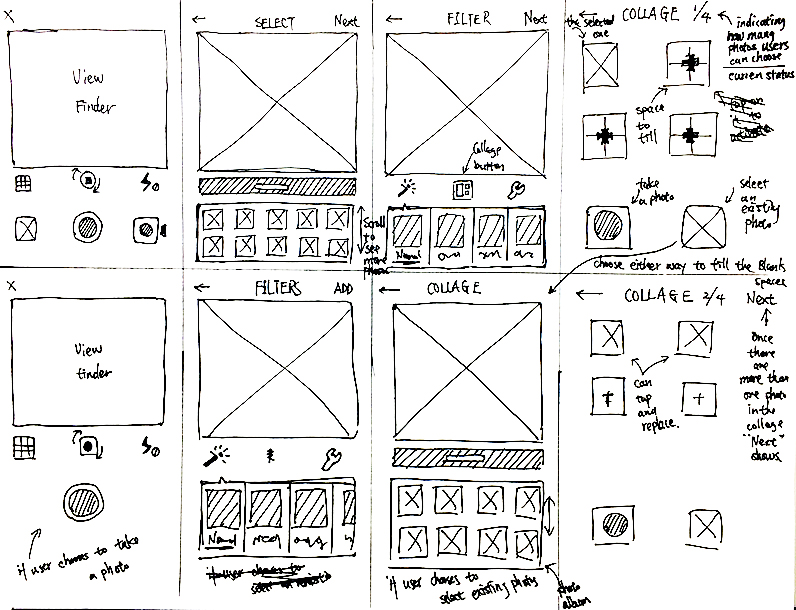 X
View
Finder
← SELECT Next
Scroll
to
see
more
photos
← FILTER Next
Collage
button
Normal
← COLLAGE 1/4
the selected
one
indicating
how many
photos users
can choose
current status
space
to
fill
take
a photo
select
an
existing
photo
choose either way to fill the blank
spaces
X
View
finder
if user chooses to take
a photo
← FILTERS ADD
Normal
← COLLAGE
if user choses to
select existing photos
photo
album
← COLLAGE 2/4 Next
can
tap
and
replace.
Once
there
are
more than
one photo
in the
collage
"Next"
shows